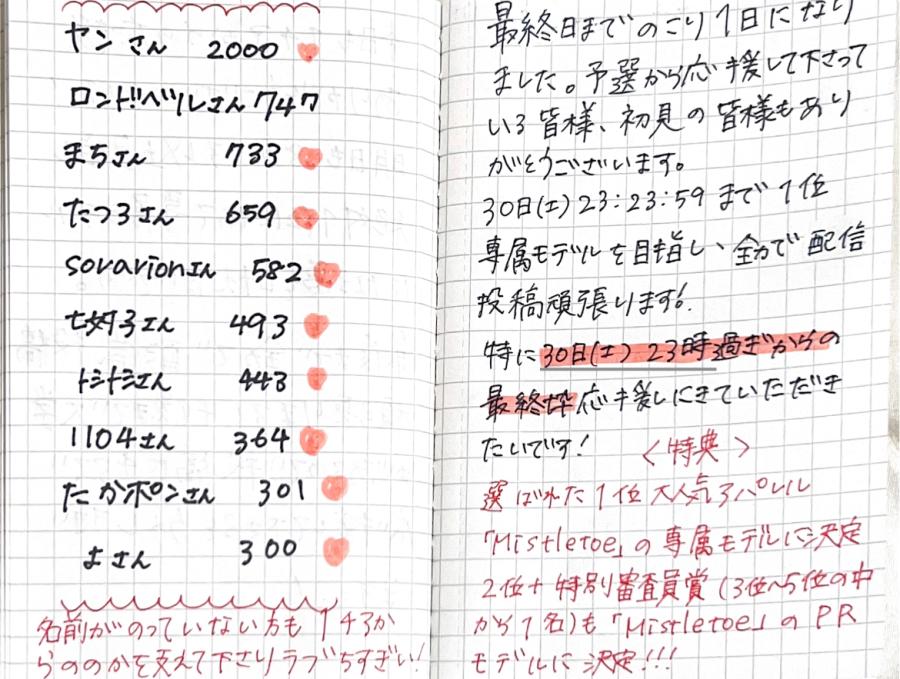 ヤンさん 2000
ロンドベルさん 747
まちさん 733
たつろさん 659
sorarionさん 582
七災子さん 493
トミトミさん 443
1104さん 364
たかポンさん 301
よさん 300
名前がのっていない方も1チアか
らののかを支えて下さりラブちすぎい!
最終日までのこり1日になり
ました。予選から応援して下さって
いる皆様、初見の皆様もあり
がとうございます。
30日(土)23:23:59まで1位
専属モデルを目指し、全力で配信
投稿頑張ります!
特に30日(土)23時過ぎからの
最終枠応援しにきていただき
たいです!
<特典>
選ばれた1位大人気アパレル
「Mistletoe」の専属モデルに決定
2位+特別審査員賞(3位~5位の中
から1名)も「Mistletoe」のPR
モデルに決定!!!